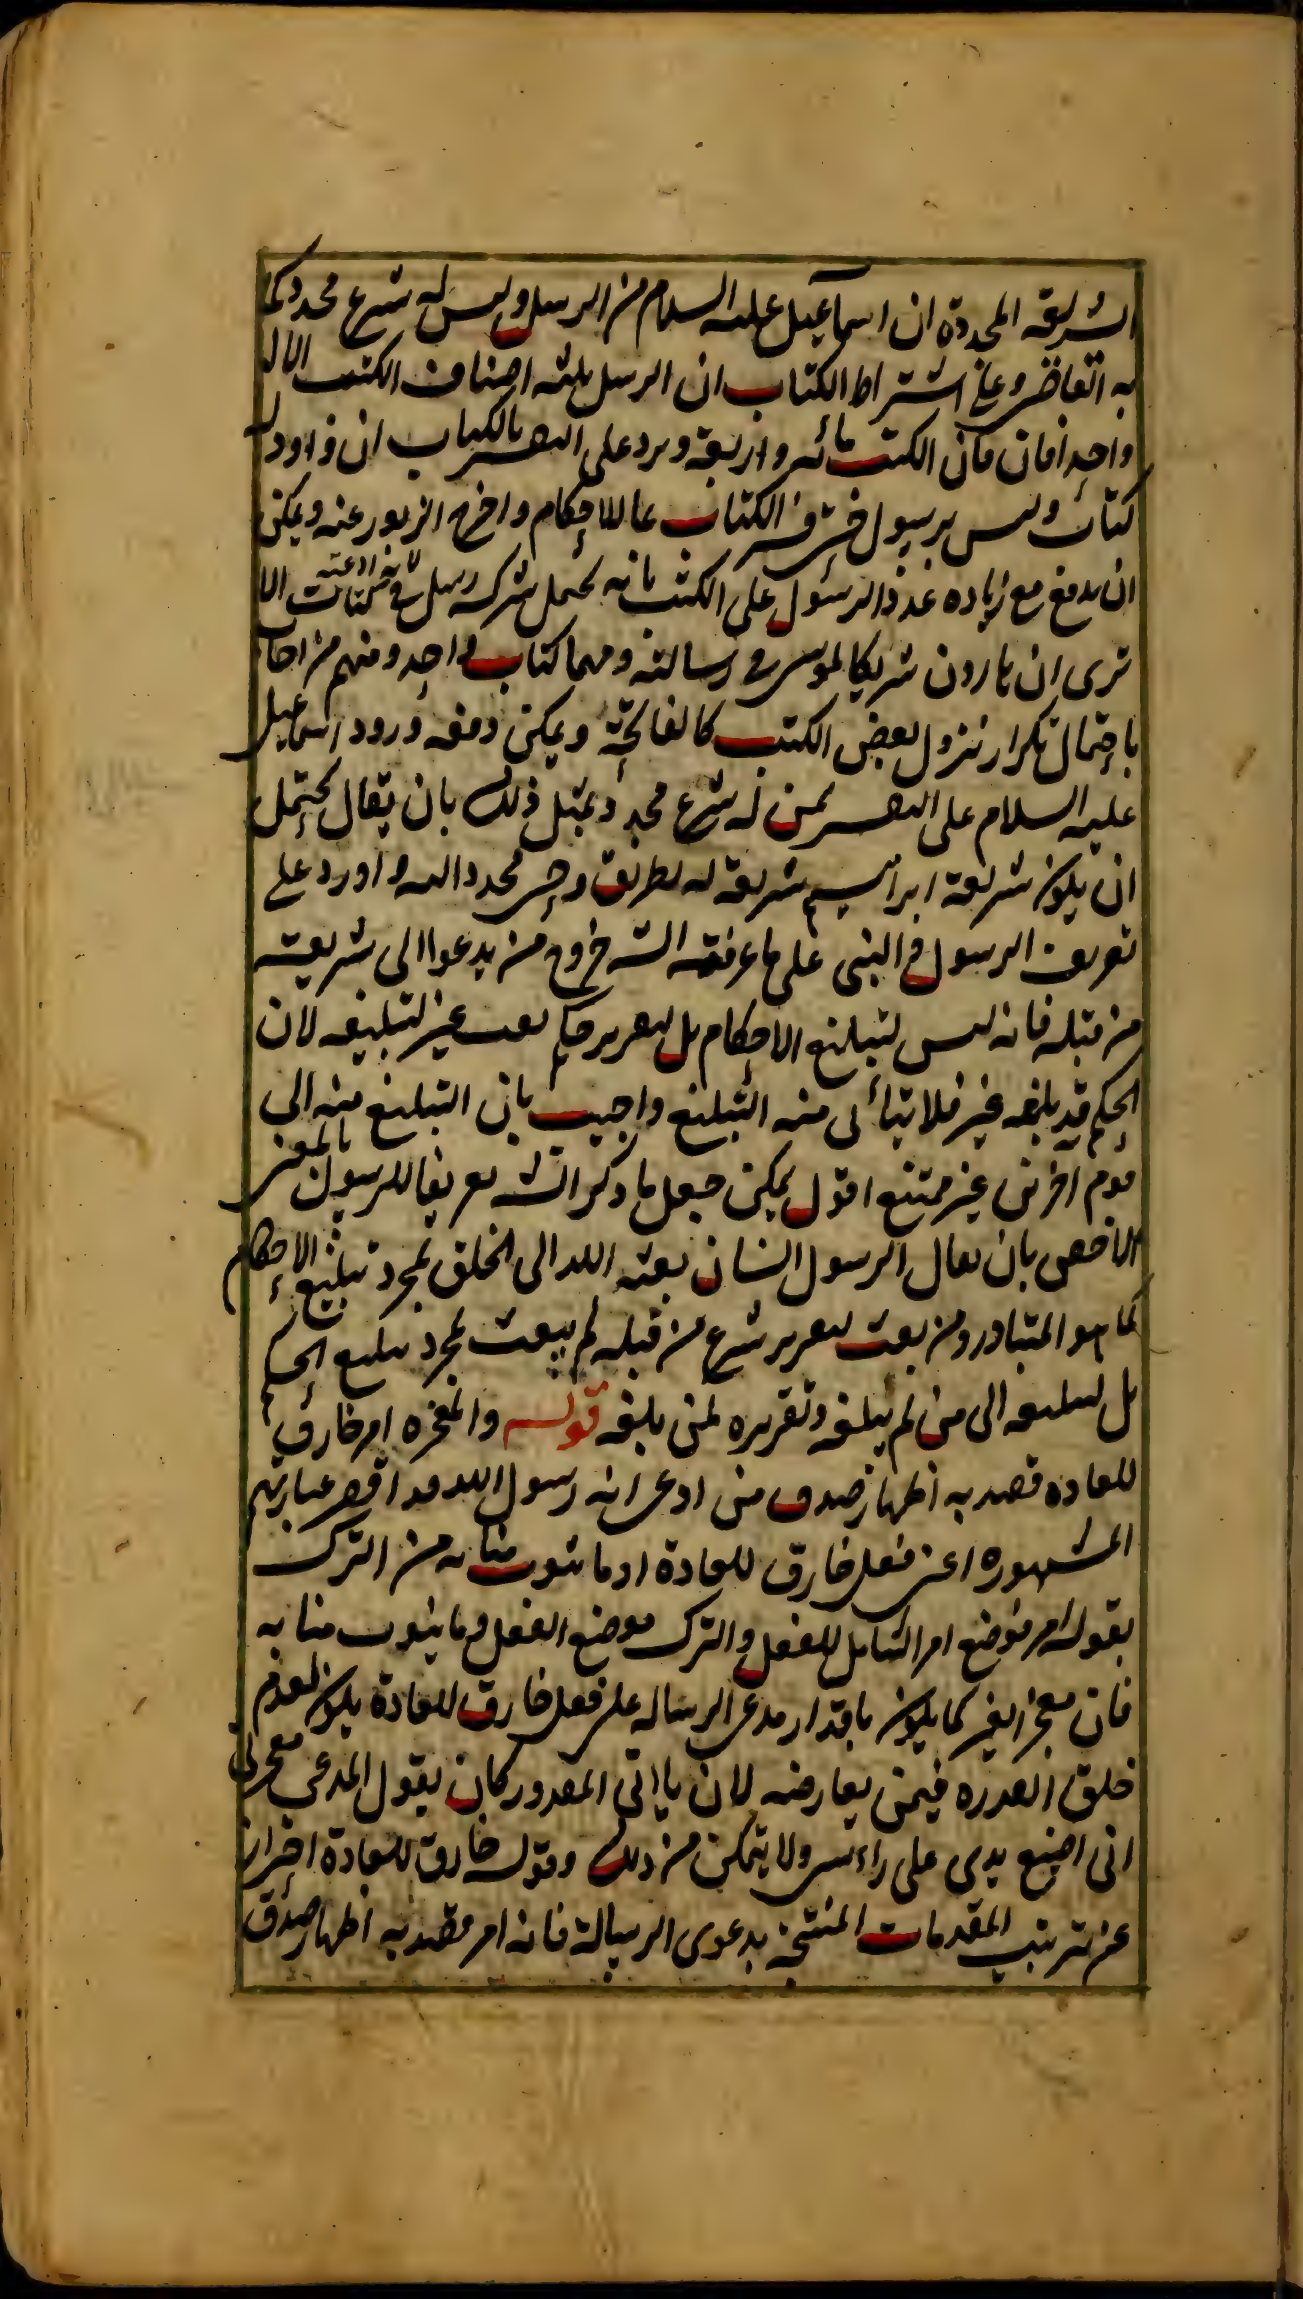 الشريعة المجددة ان اسماعيل عليه السلام من الرسل وليس له شرع مجدد كما
به القاضي وعلى اشتراط الكتاب ان الرسل ثلثة اصناف الكتب الا ان
واحدا فان فان الكتب مائه واربعة ويرد على التفسير بالكتاب ان داود له
كتاب وليس برسول الكتاب بما للاحكام واخرج الزبور عنه ويمكن
ان يدفع مع زيادة عدد الرسول على الكتب بانه يحتمل شركة رسل في كتاب الا
ترى ان هارون شريكا لموسى في رسالته ومهما كتاب واحد ومنهم من اجاب
باحتمال تكرار نزول بعض الكتب كالفاتحة ويمكن دفعه ورود اسماعيل
عليه السلام على التفسير بمن له شرع مجدد بمثل ذلك بان يقال يحتمل
ان يكون شريعة ابراهيم شريعة له بطريق وحي مجدد اليه واورد على
تعريف الرسول والنبي على ما عرفته الش خروج من يدعوا الى شريعة
من قبله فانه ليس لتبليغ الاحكام بل لتقرير حكم بعث غيره لتبليغه لان
الحكم قد بلغه غيره فلا يتأتى منه التبليغ واجيب بان التبليغ منه الى
قوم اخرين غير ممتنع اقول يمكن جعل ما ذكر الش تعريفا للرسول بالمعنى
الاخص بان يقال الرسول انسان بعثه الله الى الخلق لمجرد تبليغ الاحكام
كما هو المتبادر ومن بعث لتقرير شرع من قبله لم يبعث لمجرد تبليغ الحكم
بل لتبليغه الى من لم يبلغه وتقريره لمن بلغه قوله والمعجزه امر خارق
للعاده قصد به اظهار صدق من ادعى انه رسول الله عبارتهم
المشهوره اعني فعل خارق للعادة او ما ينوب منابه من الترك
بقوله امر فوضع امر الشامل للفعل والترك موضع الفعل وما ينوب منابه
فان معجز الغير كما يكون باقدار مدعي الرسالة على فعل خارق للعادة يكون لعدم
خلق القدره فيمن يعارضه لان ياتي المقدور كان يقول المدعي معجزتي
اني اضع يدي على راسي ولا يتمكن من ذلك وقوله خارق للعادة احتراز
عن ترتيب المقدمات المنتجة بدعوى الرسالة فانه امر قصد به اظهار صدق